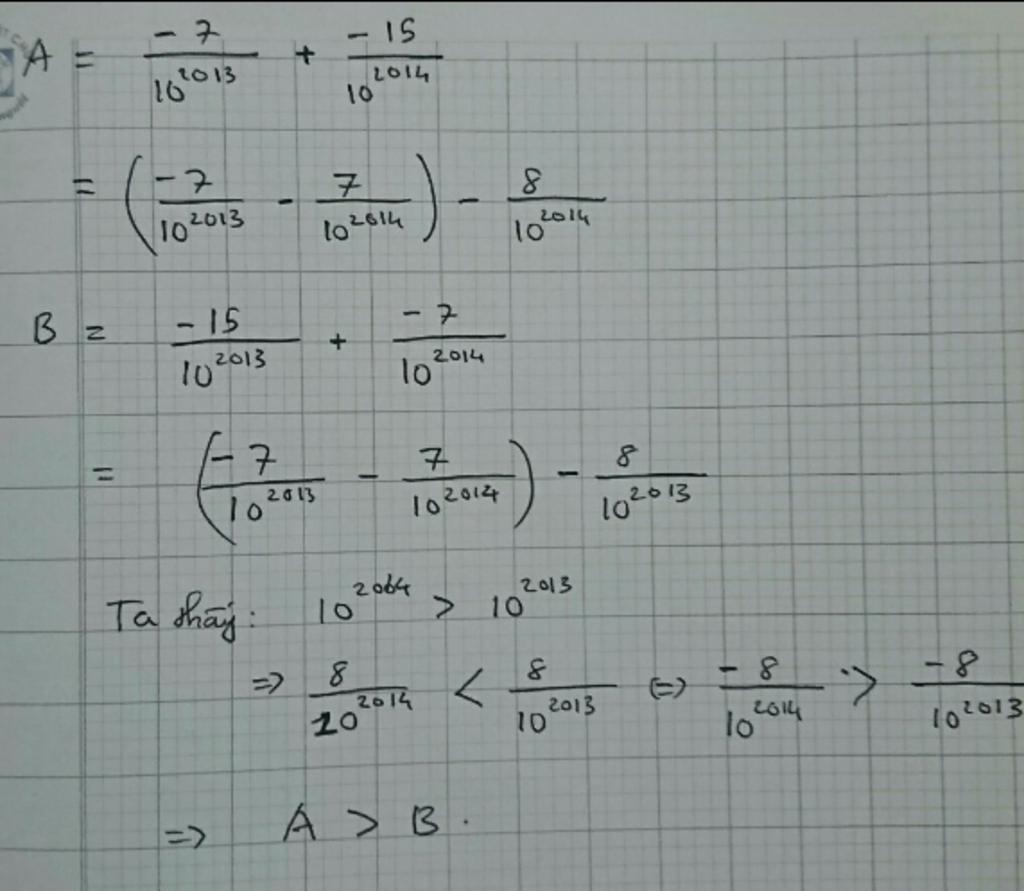 A = \frac{-7}{10^{2013}} + \frac{-15}{10^{2014}}
= \left( \frac{-7}{10^{2013}} - \frac{7}{10^{2014}} \right) - \frac{8}{10^{2014}}
B = \frac{-15}{10^{2013}} + \frac{-7}{10^{2014}}
= \left( \frac{-7}{10^{2013}} - \frac{7}{10^{2014}} \right) - \frac{8}{10^{2013}}
Ta thấy: 10^{2014} > 10^{2013}
=> \frac{8}{10^{2014}} < \frac{8}{10^{2013}} (=) \frac{-8}{10^{2014}} > \frac{-8}{10^{2013}}
=> A > B.